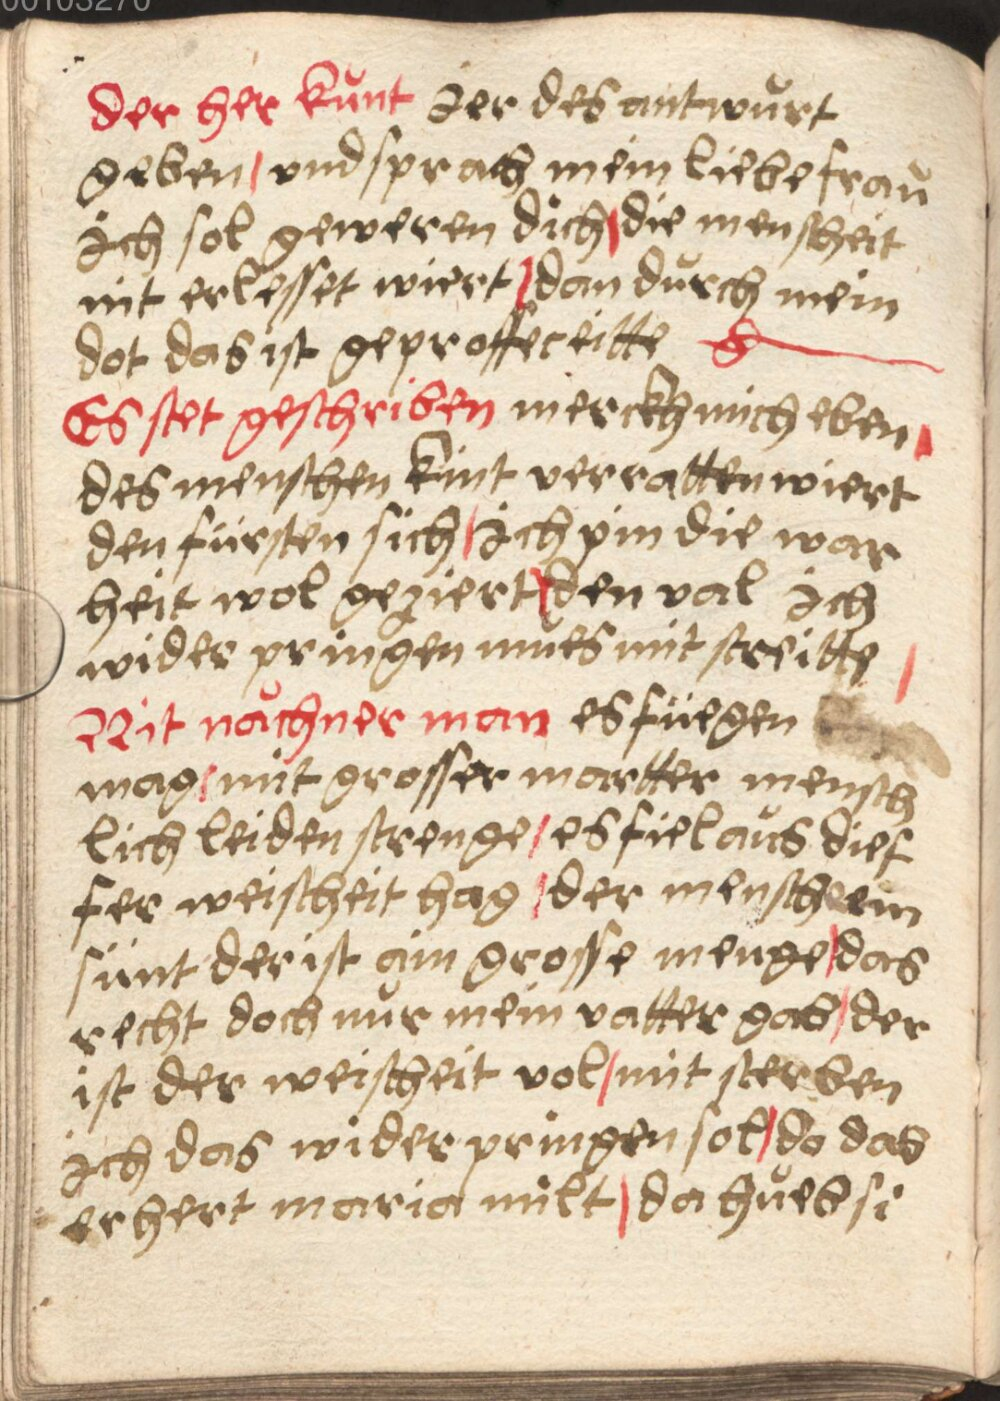 00103270
der her kůnt Jer des antwůrt
geben / vnd sprach mein liebe fraů
Jch sol geweren dich / die menscheit
nit erlesset wiert / dan důrch mein
dot das ist geproffeceitte
Es stet geschriben merckh mich eben /
des menschen kint verratten wiert
den fürsten sich / Jch pin die war
heit wol geziert / den val Jch
wider pringen mues mit streitte /
Mit nachner man es füegen
mag / mit grosser martter mensch
lich leiden strenge / es fiel aůs dief
fer weischeit hag / der mensch ein
sünt der ist ain grosse menge / das
recht doch nůr mein vatter gab / der
ist der weischeit vol / mit sterben
Jch das wider pringen sol / do das
erhert maria milt / da hůeb si